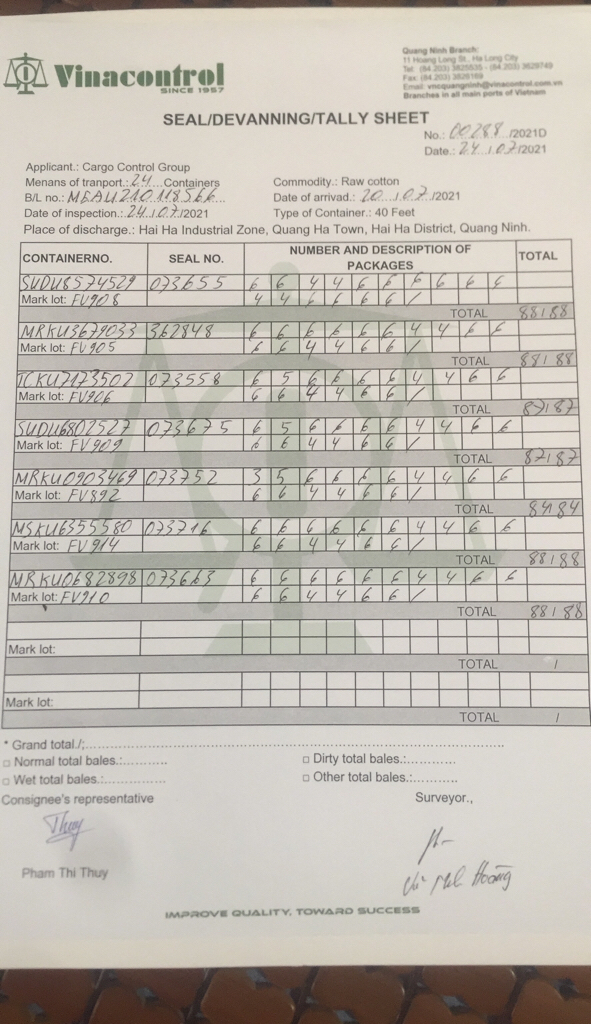 Vinacontrol
SINCE 1957
Quang Ninh Branch:
11 Hoang Long St., Ha Long City
Tel: (84.203) 3825835 - (84.203) 3629749
Fax: (84.203) 3826169
Email: vncquangninh@vinacontrol.com.vn
Branches in all main ports of Vietnam
SEAL/DEVANNING/TALLY SHEET
No.: 00288 /2021D
Date.: 24 / 07/2021
Applicant.: Cargo Control Group
Menans of tranport.: 24 Containers
Commodity.: Raw cotton
B/L no.: MEAU210118566
Date of arrivad.: 20 / 07 /2021
Date of inspection.: 24 / 07/2021
Type of Container.: 40 Feet
Place of discharge.: Hai Ha Industrial Zone, Quang Ha Town, Hai Ha District, Quang Ninh.
CONTAINERNO. SEAL NO. NUMBER AND DESCRIPTION OF PACKAGES TOTAL
SUDU8574529 073655 6 6 4 4 6 6 6 6 6 6
Mark lot: FV908 4 4 6 6 6 6 /
TOTAL 88/88
MRKU3679033 362848 6 6 6 6 6 6 4 4 6 6
Mark lot: FV905 6 6 4 4 6 6 /
TOTAL 88/88
TCKU7173502 073558 6 5 6 6 6 6 4 4 6 6
Mark lot: FV906 6 6 4 4 6 6 /
TOTAL 87/87
SUDU6802527 073675 6 5 6 6 6 6 4 4 6 6
Mark lot: FV909 6 6 4 4 6 6 /
TOTAL 87/87
MRKU0903469 073752 3 5 6 6 6 6 4 4 6 6
Mark lot: FV892 6 6 4 4 6 6 /
TOTAL 84/84
MSKU6355580 073716 6 6 6 6 6 6 4 4 6 6
Mark lot: FV914 6 6 4 4 6 6 /
TOTAL 88/88
MRKU0682898 073663 6 6 6 6 6 6 4 4 6 6
Mark lot: FV910 6 6 4 4 6 6 /
TOTAL 88/88
Mark lot:
TOTAL /
Mark lot:
TOTAL /
* Grand total./:
Normal total bales.:
Dirty total bales.:
Wet total bales.:
Other total bales.:
Consignee's representative
Surveyor.,
Thuy
Pham Thi Thuy
Hoàng
IMPROVE QUALITY, TOWARD SUCCESS